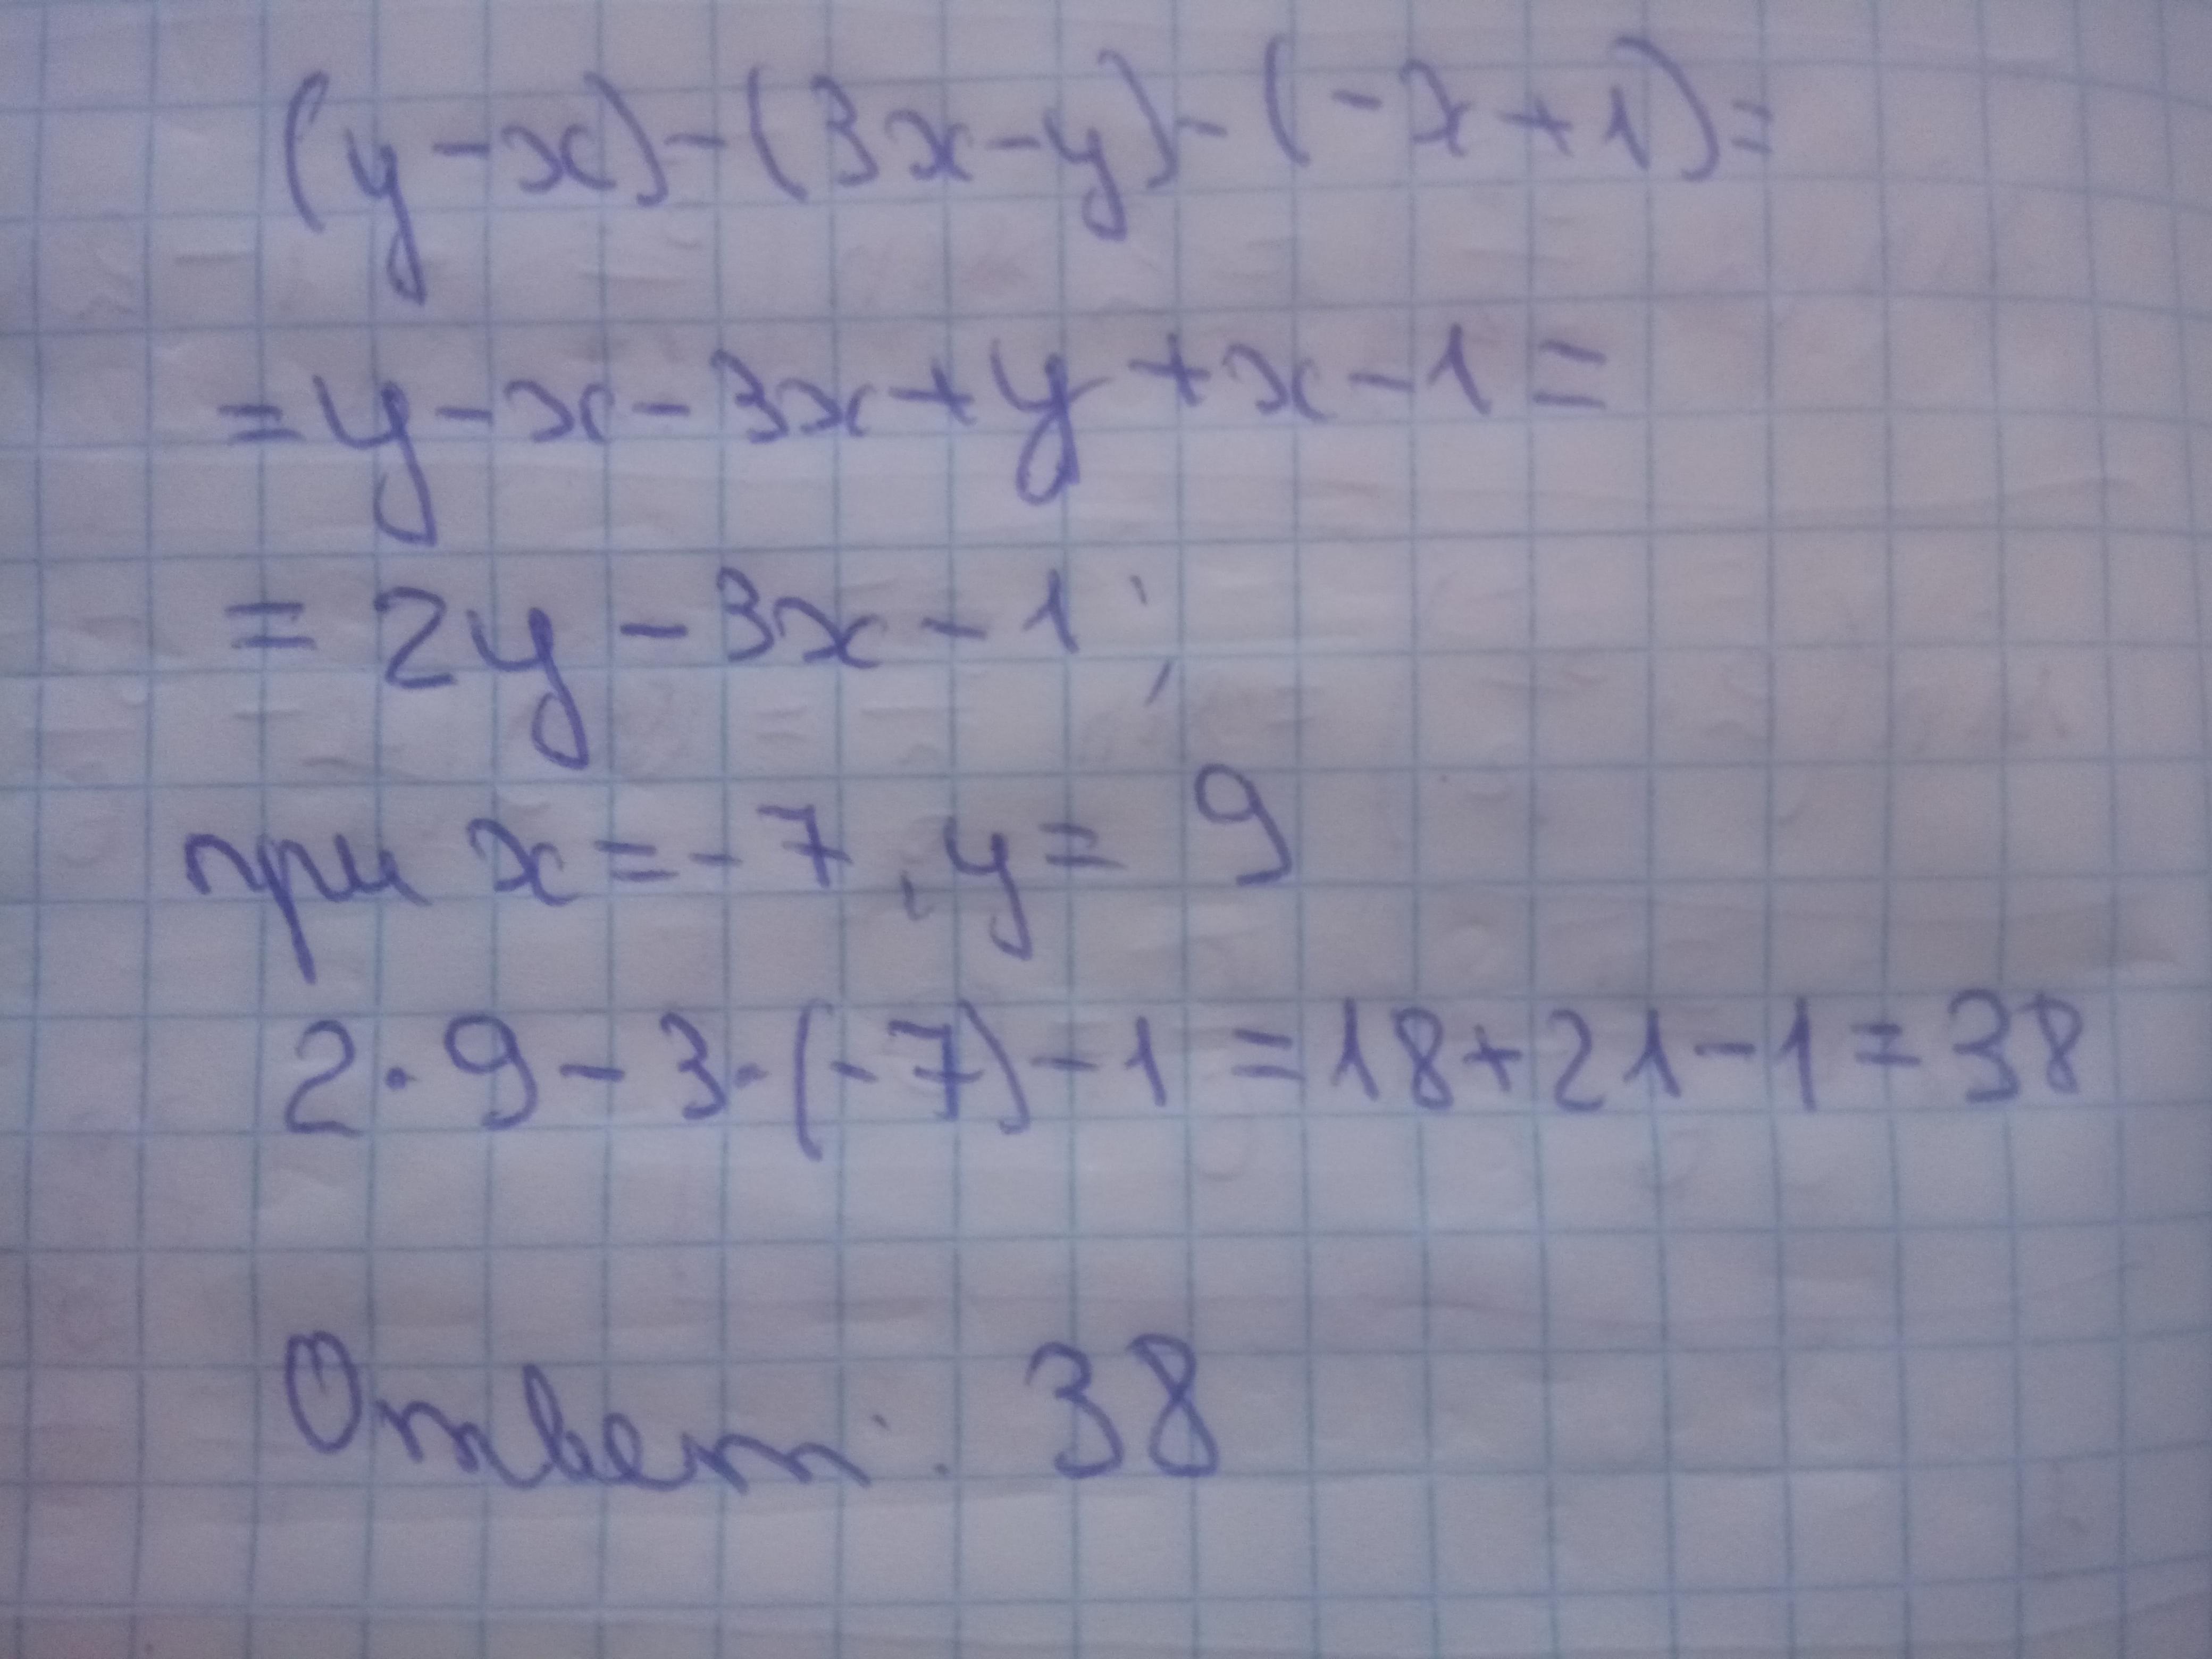 (y-x)-(3x-y)-(-x+1)=
=y-x-3x+y+x-1=
=2y-3x-1;
при x=-7, y=9
2·9-3·(-7)-1=18+21-1=38
Ответ: 38